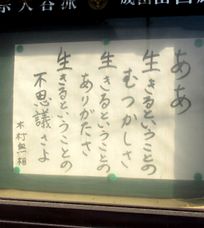 ああ
生きるということの
むつかしさ
生きるということの
ありがたさ
生きるということの
不思議さよ
木村無相